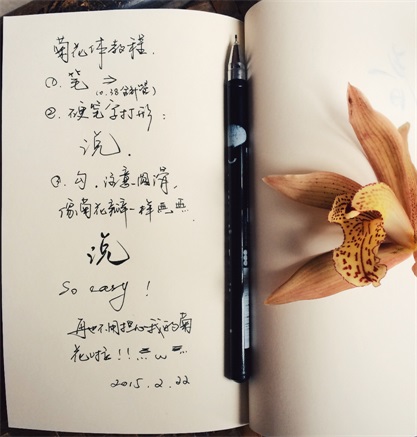 菊花体教程.
①. 笔 ⇒
(0.38签字笔)
②. 硬笔字打形:
说.
③. 勾, 注意圆滑,
像菊花瓣一样画画.
说
So easy!
再也不用担心我的菊
花啦!!=ω=
2015.2.22